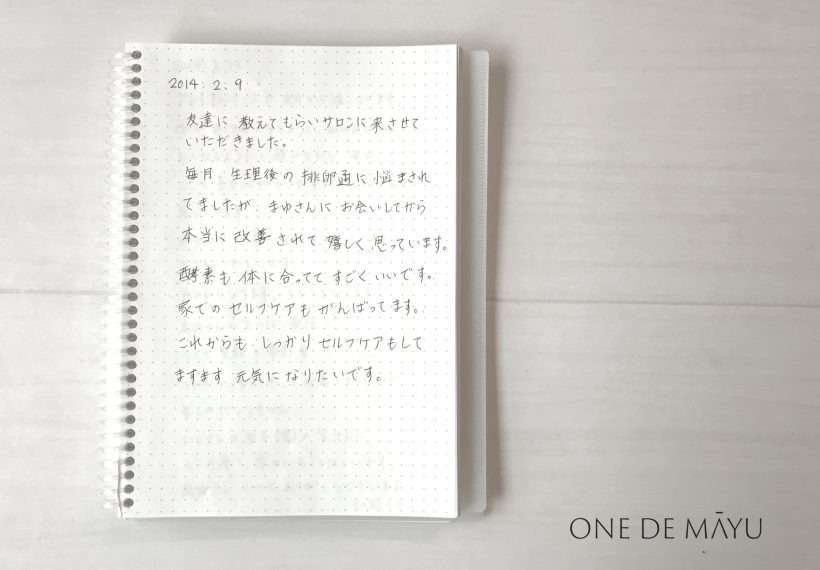 2014. 2. 9
友達に 教えてもらいサロンに来させて
いただきました。
毎月、生理後の 排卵痛に悩まされ
てましたが、まゆさんに お会いしてから
本当に 改善されて 嬉しく 思っています。
酵素も 体に合ってて すごく いいです。
家での セルフケアも がんばってます。
これからも、しっかり セルフケアもして
ますます 元気に なりたいです。
ONE DE MĀYU